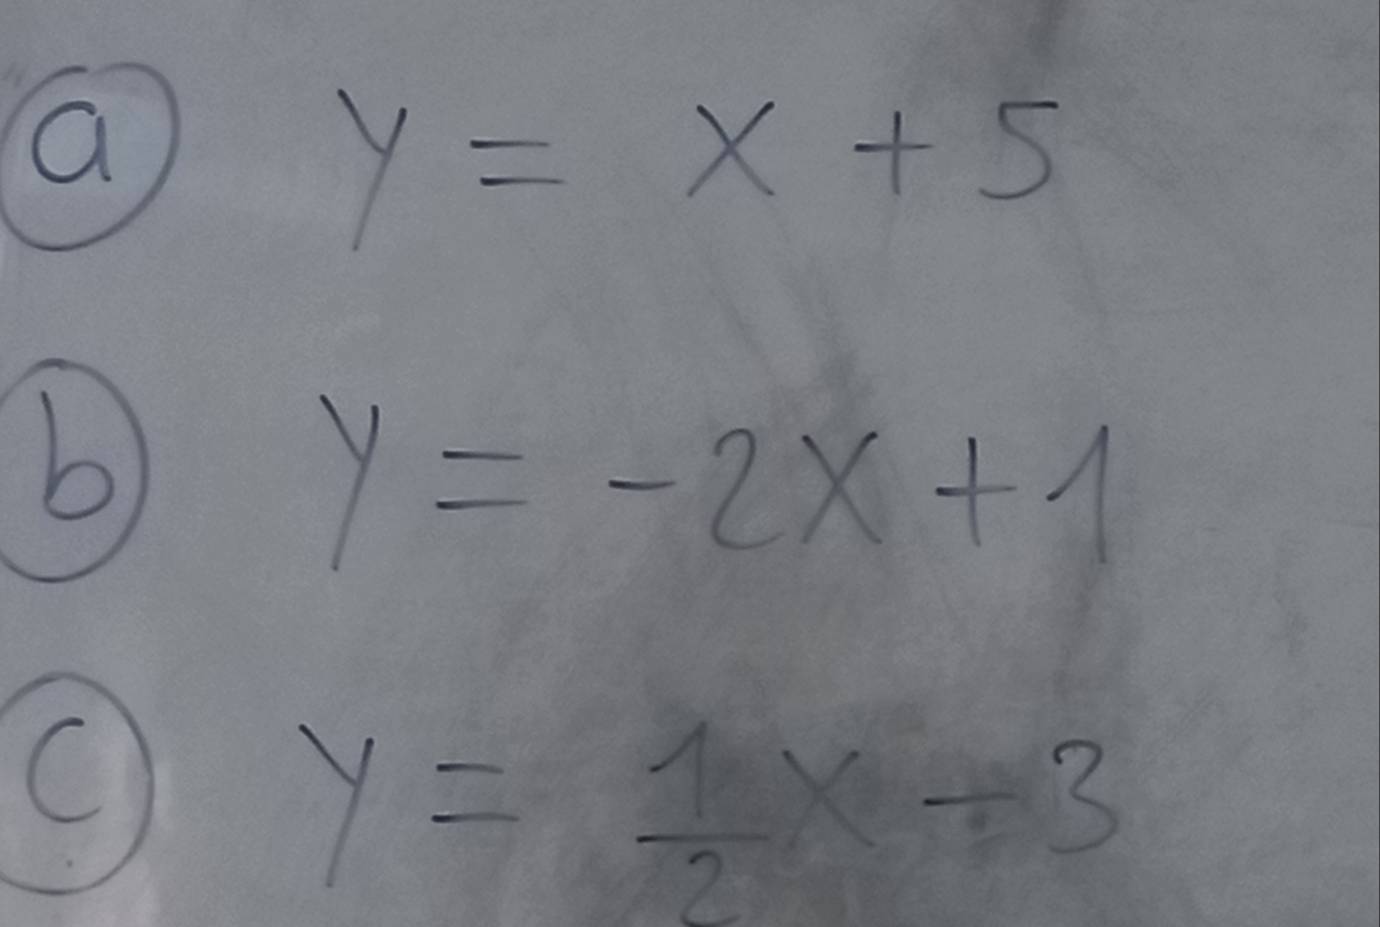 a y = x + 5
b y = -2x + 1
c y = 1/2 x - 3